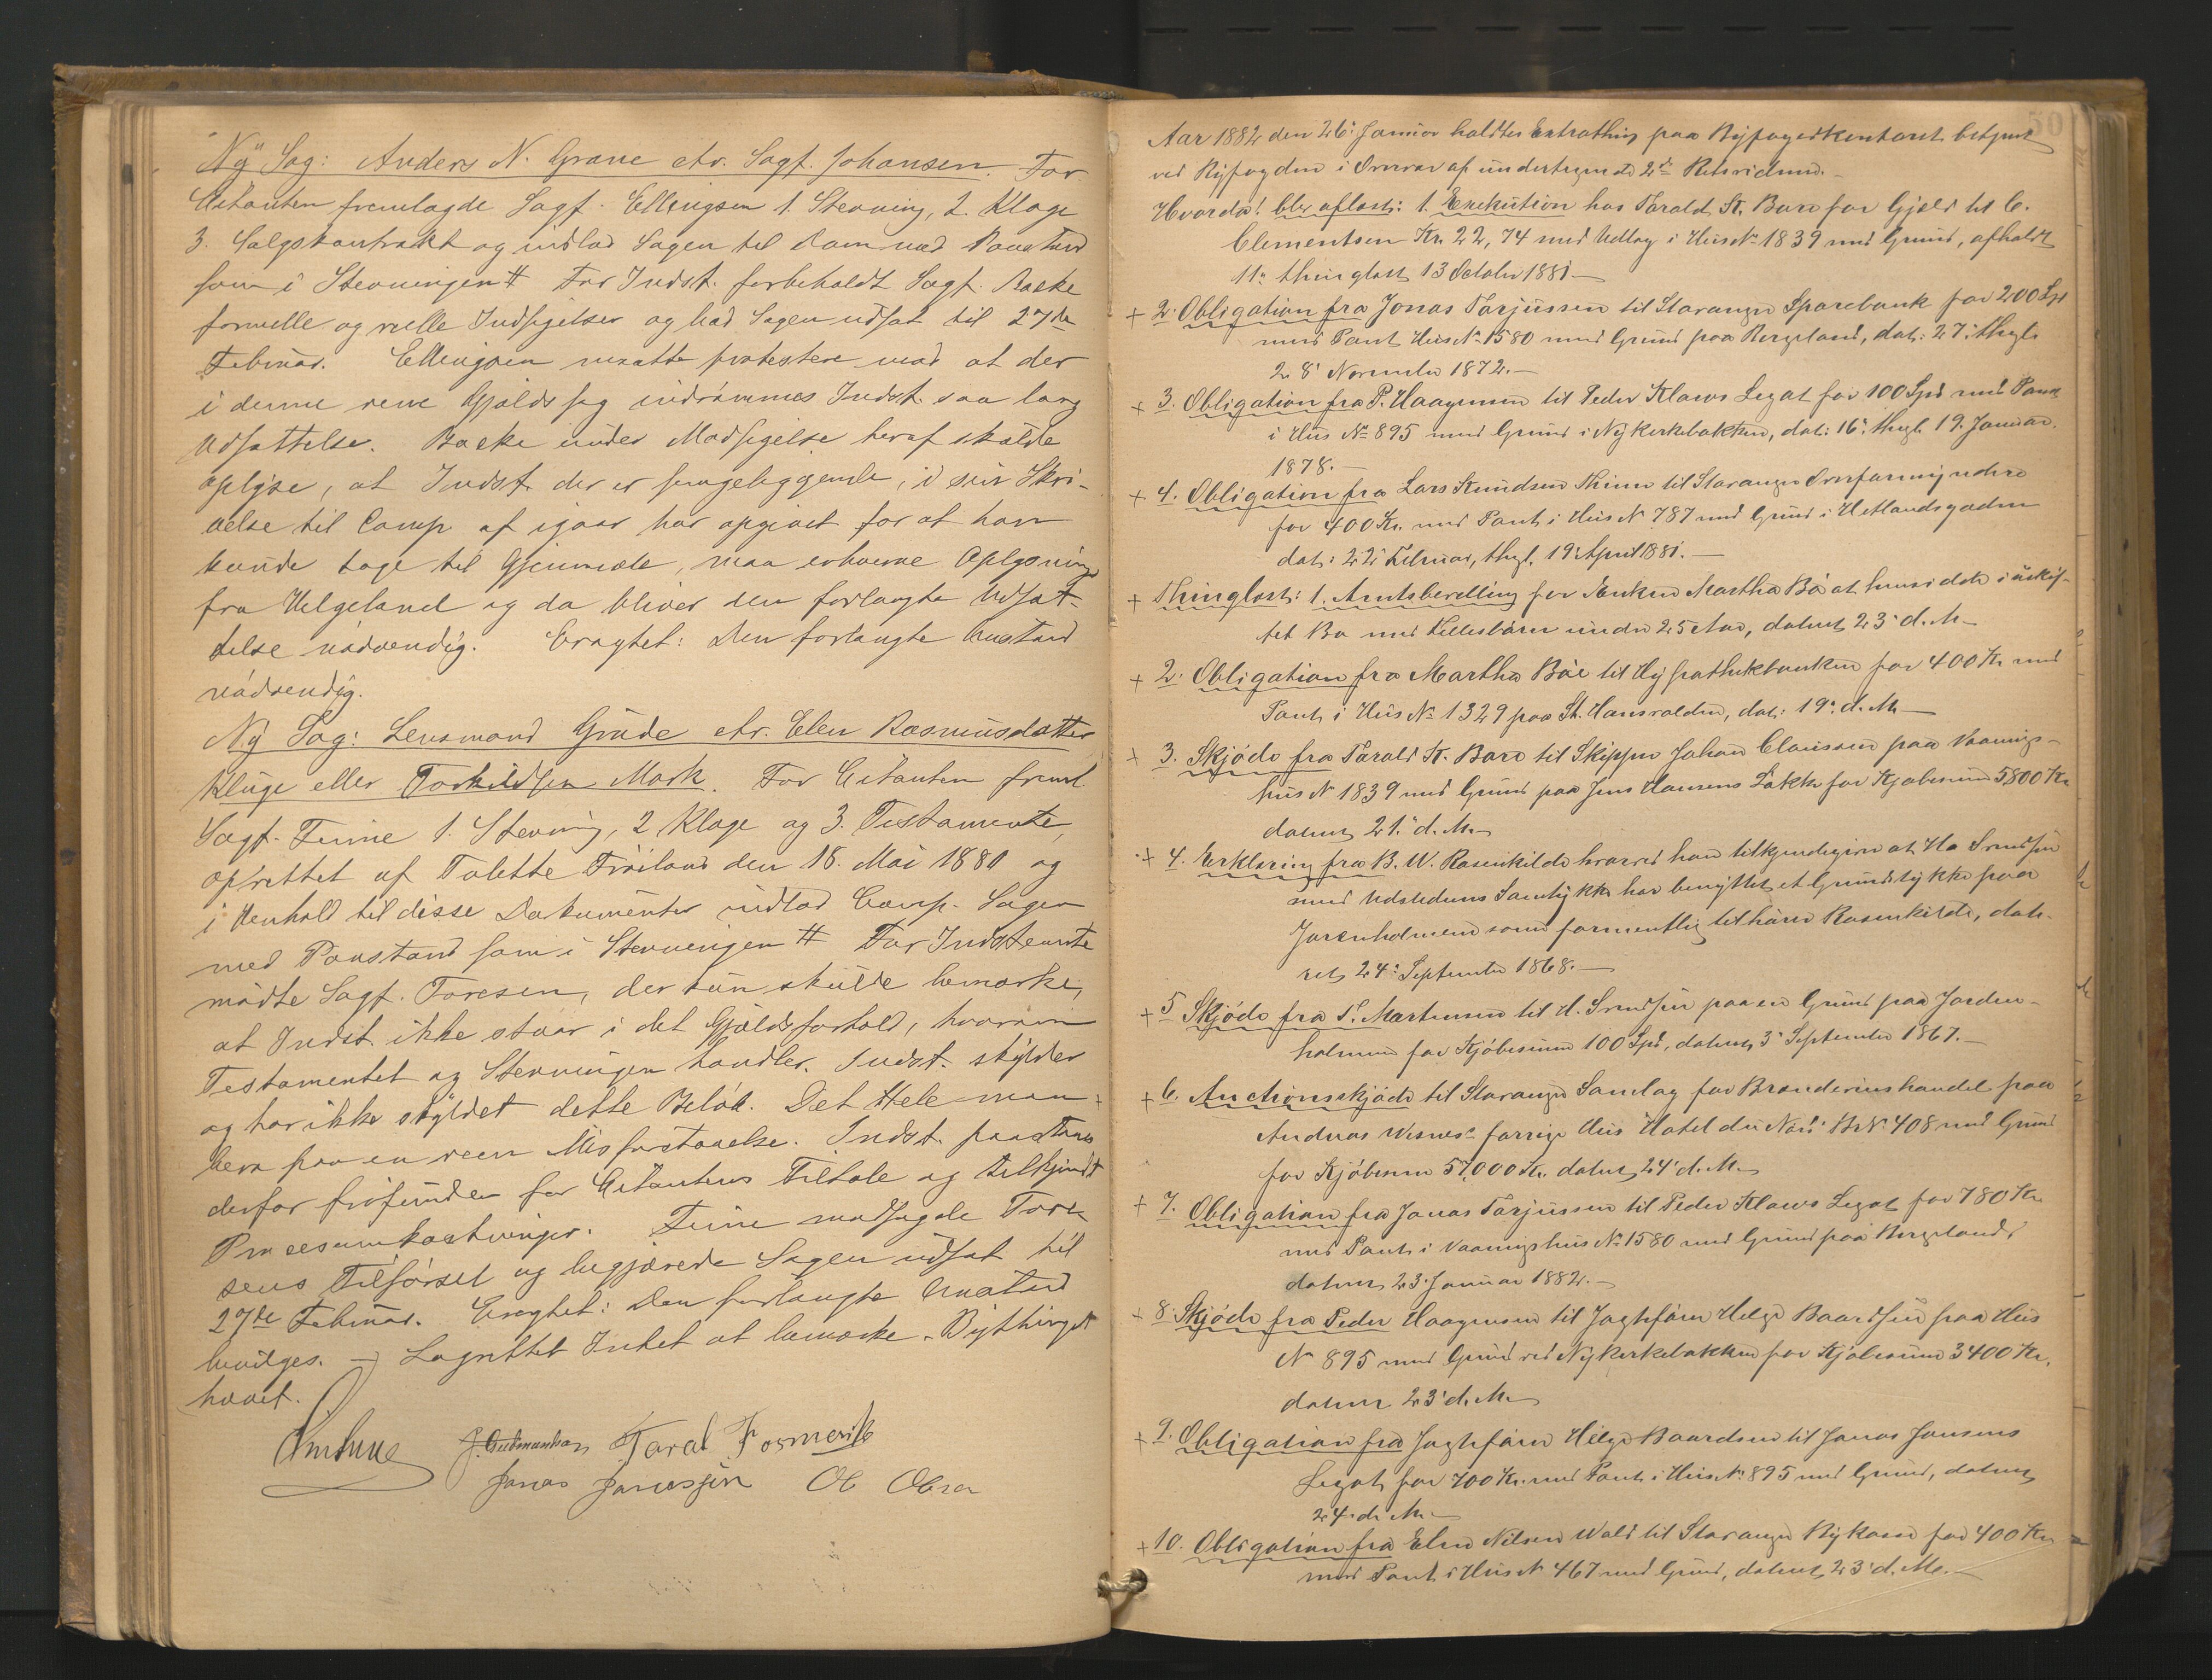 Ny Sag: Anders N. Grane ctr. Sagf. Johansen. For
Citanten fremlagde Sagf. Ellingsen 1. Stevning, 2. Klage
3. Salgskontrakt og indlod Sagen til Dom med Paastand
som i Stevningen # For Indst. forbeholdt Sagf. Backe
formelle og reelle Indsigelser og bad Sagen udsat til 27de
Februar. Ellingsen maatte protestere mod at der
i denne rene Gjældssag indrømmes Indst. saa lang
Udsættelse. Backe under Modsigelse heraf skulde
oplyse, at Indst. der er sengeliggende, i sin Skri-
velse til Comp. af igaar har opgivet for at han
kunde tage til Gjenmæle, maa erhverve Oplysninger
fra Helgeland og da bliver den forlangte Udsæt-
telse nødvendig. Eragtet: Den forlangte Anstand
nødvendig.
Ny Sag: Lensmand Grude ctr. Elen Rasmusdatter
Kluge eller Torkildsen Mork. For Citanten freml.
Sagf. Feine 1. Stevning, 2 Klage og 3. Testamente,
oprettet af Tolette Friøland den 18. Mai 1880 og
i Henhold til disse Dokumenter indlod Comp. Sagen
med Paastand som i Stevningen # For Indstevnte
mødte Sagf. Toresen, der kun skulde bemærke,
at Indst. ikke staar i det Gjældsforhold, hvorom
Testamentet og Stevningen handler. Indst. skylder
og har ikke skyldet dette Beløb. Det Hele maa
bero paa en reen Misforstaaelse. Indst. paastaaes
derfor frifunden for Citantens Tiltale og tilkjendt
Procesomkostninger. Feine modsagde Tore-
sens Tilførsel og begjærede Sagen udsat til
27de Februar. Eragtet: Den forlangte Anstand
bevilges. – Lagrettet Intet at bemærke. Bythinget
hævet.
J. Gudmundsen Taral Fosmark
Jonas Jonassen Ol Olsen
50
Aar 1882 den 26: Januar holdtes Extrathing paa Byfogedkontoret bestyret
ved Byfogden i Overvær af undertegnede 2de Retsvidner.
Hvorda! blev aflæst: 1. Exekution hos Tarald St. Bore for Gjæld til C.
Clementsen Kr. 22,74 med Udlæg i Hus No 1839 med Grund, afholdt
11: thinglæst 13 October 1881.–
+ 2. Obligation fra Jonas Tarjussen til Stavanger Sparebank for 200 Spd
med Pant Hus No 1580 med Grund paa Bergeland, dat: 27. thgl.
28' November 1872.–
+ 3. Obligation fra P. Haagensen til Peder Klaws Legat for 100 Spd med Pant
i Hus No 895 med Grund i Nykirkebakken, dat: 16: thgl. 19. Januar
1878.–
+ 4. Obligation fra Lars Knudsen Thime til Stavanger Overformynderi
for 400 Kr. med Pant i Hus No 787 med Grund i Hetlandsgaden
dat: 22' Februar, thgl. 19' April 1881.–
+ Thinglæst: 1. Amtsbevilling for Enken Martha Bø at hensidde i uskif-
tet Bo med Fællesbørn under 25 Aar, dateret 23' d. M.–
+ 2. Obligation fra Martha Bøe til Hypothekbanken for 400 Kr med
Pant i Hus No 1329 paa St. Hansvolden, dat: 19' d. M.–
+ 3. Skjøde fra Tarald St. Bore til Skipper Johan Clausson paa Vaanings-
hus No 1839 med Grund paa Jens Hansens Løkke for Kjøbesum 5800 Kr
dateret 21' d. M.
+ 4. Erklæring fra B. W. Rosenkilde hvorved han tilkjendegiver at Ha Svendsen
med Udstederens Samtykke har benyttet et Grundstykke paa
Jorenholmen som formentlig tilhører Rosenkilde, date-
ret 24: September 1868.–
+ 5 Skjøde fra T. Martinsen til H. Svendsen paa en Grund paa Jorden-
holmen for Kjøbesum 100 Spd, dateret 3' September 1867.–
+ 6. Auctionsskjøde til Stavanger Samlag for Brændevinshandel paa
Andreas Wesnes' forrige Hus Hotel du Nord Br. No 408 med Grund
for Kjøbesum 57,000 Kr. dateret 24' d. M.
+ 7. Obligation fra Jonas Tarjussen til Peder Klaws Legat for 780 Kr.
med Pant i Vaaningshus No 1580 med Grund paa Bergeland,
dateret 23' Januar 1882.–
+ 8. Skjøde fra Peder Haagensen til Jagtfører Helge Baardsen paa Hus
No 895 med Grund ved Nykirkebakken for Kjøbesum 3400 Kr,
dateret 23' d. M.
+ 9. Obligation fra Jagtfører Helge Baardsen til Jonas Jansens
Legat for 700 Kr. med Pant i Hus No 895 med Grund, dateret
24. d. M.
+ 10. Obligation fra Elen Nilsen Wald til Stavanger Bykasse for 400 Kr
med Pant i Hus No 467 med Grund, dateret 23' d. M.–